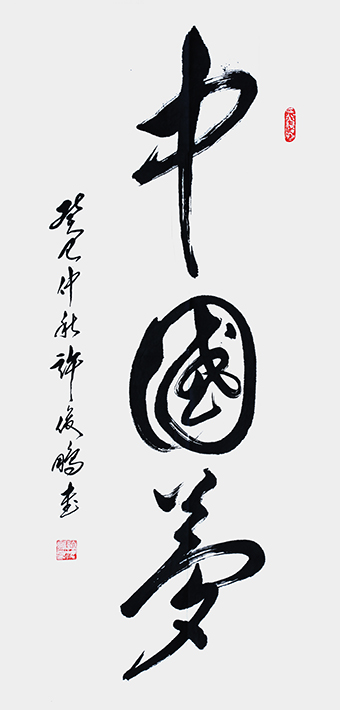 中國夢
癸巳仲秋許俊鵬書